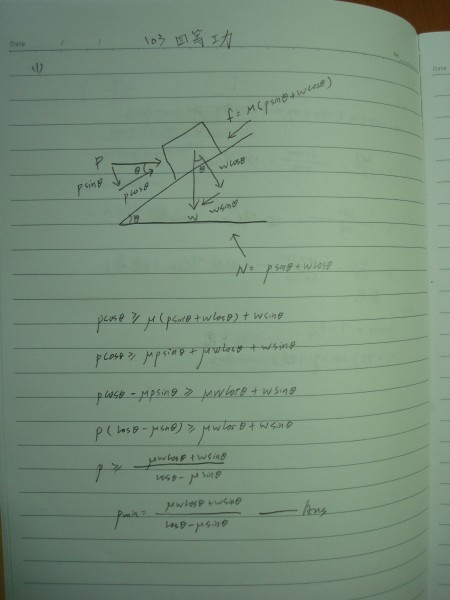 Date / /
103 四等 工力
No.
Date
(1)
f = μ(psinθ+wcosθ)
P
θ
θ
wcosθ
psinθ
pcosθ
wsinθ
θ
w
N = psinθ+wcosθ
pcosθ ≥ μ(psinθ+wcosθ) + wsinθ
pcosθ ≥ μpsinθ + μwcosθ + wsinθ
pcosθ - μpsinθ ≥ μwcosθ + wsinθ
p(cosθ - μsinθ) ≥ μwcosθ + wsinθ
p ≥ μwcosθ+wsinθ / cosθ - μsinθ
pmin = μwcosθ+wsinθ / cosθ-μsinθ — Ans